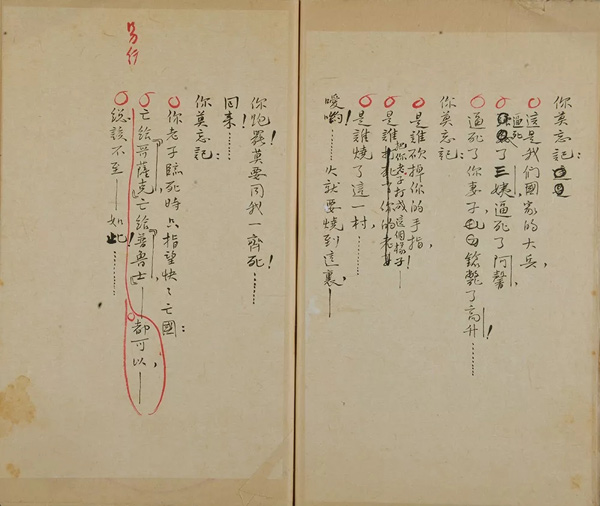 你莫忘記：
這是我們國家的大兵，
逼死了三姨，逼死了阿馨，
逼死了你妻子，鎗斃了高升！………
你莫忘記：
是誰砍掉你的手指，
是誰把你老子打成這個樣子！——
是誰燒了這一村，
噯喲！………火就要燒到這裏，——
你跑罷！莫要同我一齊死！………
回來！………
你莫忘記：
你老子臨死時只指望快〻亡國：
亡給『哥薩克』，亡給『普魯士』，——都可以，——
總該不至——如此！………
另行